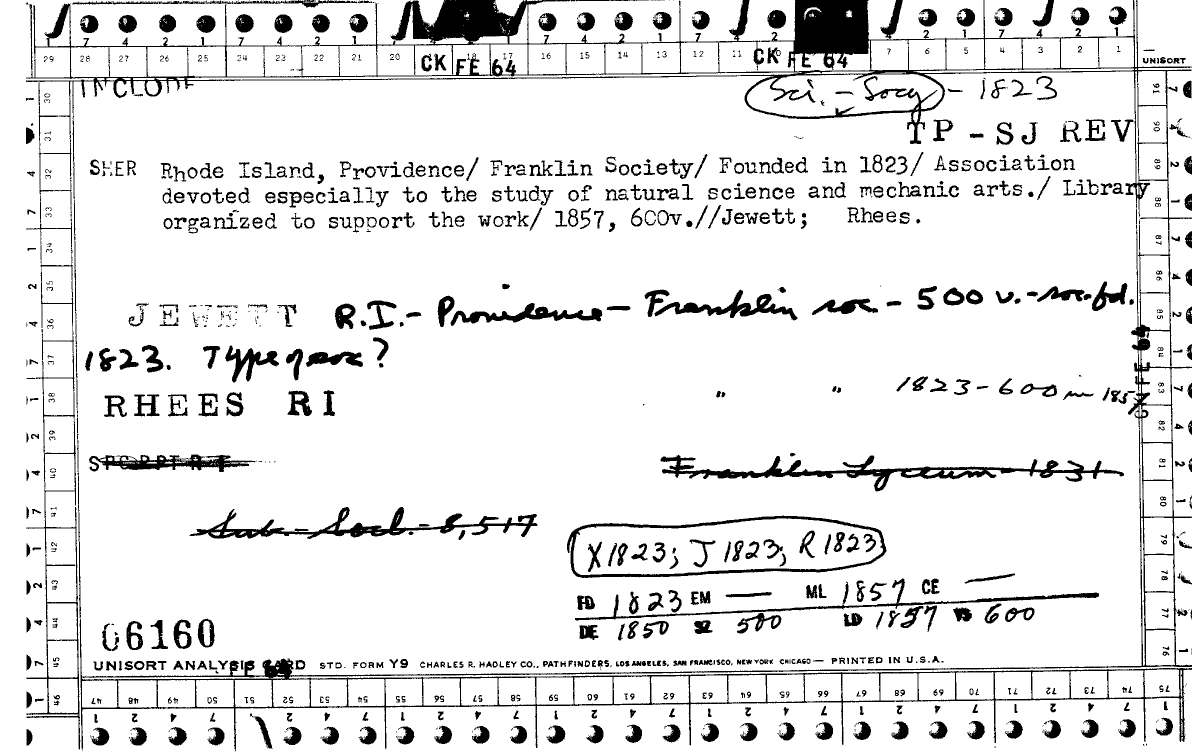 7 4 2 1 7 4 2 1 7 4 2 1 7 4 2 1
29 28 27 26 25 24 23 22 21 20 18 17 16 15 14 13 12 11 7 6 5 4 3 2 1
CK FE 64 CK FE 64 UNISORT
INCLUDE
Sci. - Socy - 1823
TP - SJ REV
SHER Rhode Island, Providence/ Franklin Society/ Founded in 1823/ Association
devoted especially to the study of natural science and mechanic arts./ Library
organized to support the work/ 1857, 600v.//Jewett; Rhees.
JEWETT R.I. - Providence - Franklin soc - 500 v. - soc. fd.
1823. Type of soc?
" " 1823 - 600 in 1857
RHEES RI
Franklin Lyceum - 1831
Sub. - Socl. - 8,517
X 1823; J 1823; R 1823
FD 1823 EM — ML 1857 CE —
DE 1850 SZ 500 LD 1857 VS 600
06160
UNISORT ANALYSIS CARD STD. FORM Y9 CHARLES R. HADLEY CO., PATHFINDERS, LOS ANGELES, SAN FRANCISCO, NEW YORK CHICAGO — PRINTED IN U.S.A.
FE 64
47 48 49 50 51 52 53 54 55 56 57 58 59 60 61 62 63 64 65 66 67 68 69 70 71 72 73 74 75